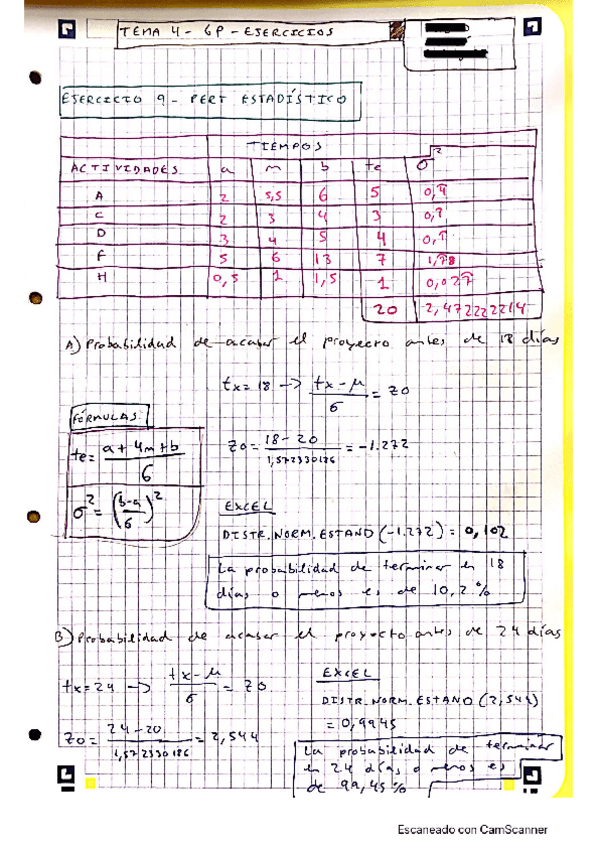 TEMA 4 - GP - EJERCICIOS
EJERCICIO 9 - PERT ESTADÍSTICO
TIEMPOS
ACTIVIDADES a m b te σ²
A 2 5,5 6 5 0,4
C 2 3 4 3 0,1
D 3 4 5 4 0,1
F 5 6 13 7 1,78
H 0,5 1 1,5 1 0,027
20 2,472222214
A) Probabilidad de acabar el proyecto antes de 18 días
tx = 18 -> tx - μ / σ = Zo
FÓRMULAS
te = a + 4m + b / 6
σ² = (b-a / 6)²
Zo = 18 - 20 / 1,572330186 = -1.272
EXCEL
DISTR.NORM.ESTAND (-1.272) = 0,102
La probabilidad de terminar en 18
días o menos es de 10,2%
B) Probabilidad de acabar el proyecto antes de 24 días
tx = 24 -> tx - μ / σ = Zo
Zo = 24 - 20 / 1,572330186 = 2,544
EXCEL
DISTR.NORM.ESTAND (2,544)
= 0,9945
La probabilidad de terminar
en 24 días o menos es
de 99,45%
Escaneado con CamScanner